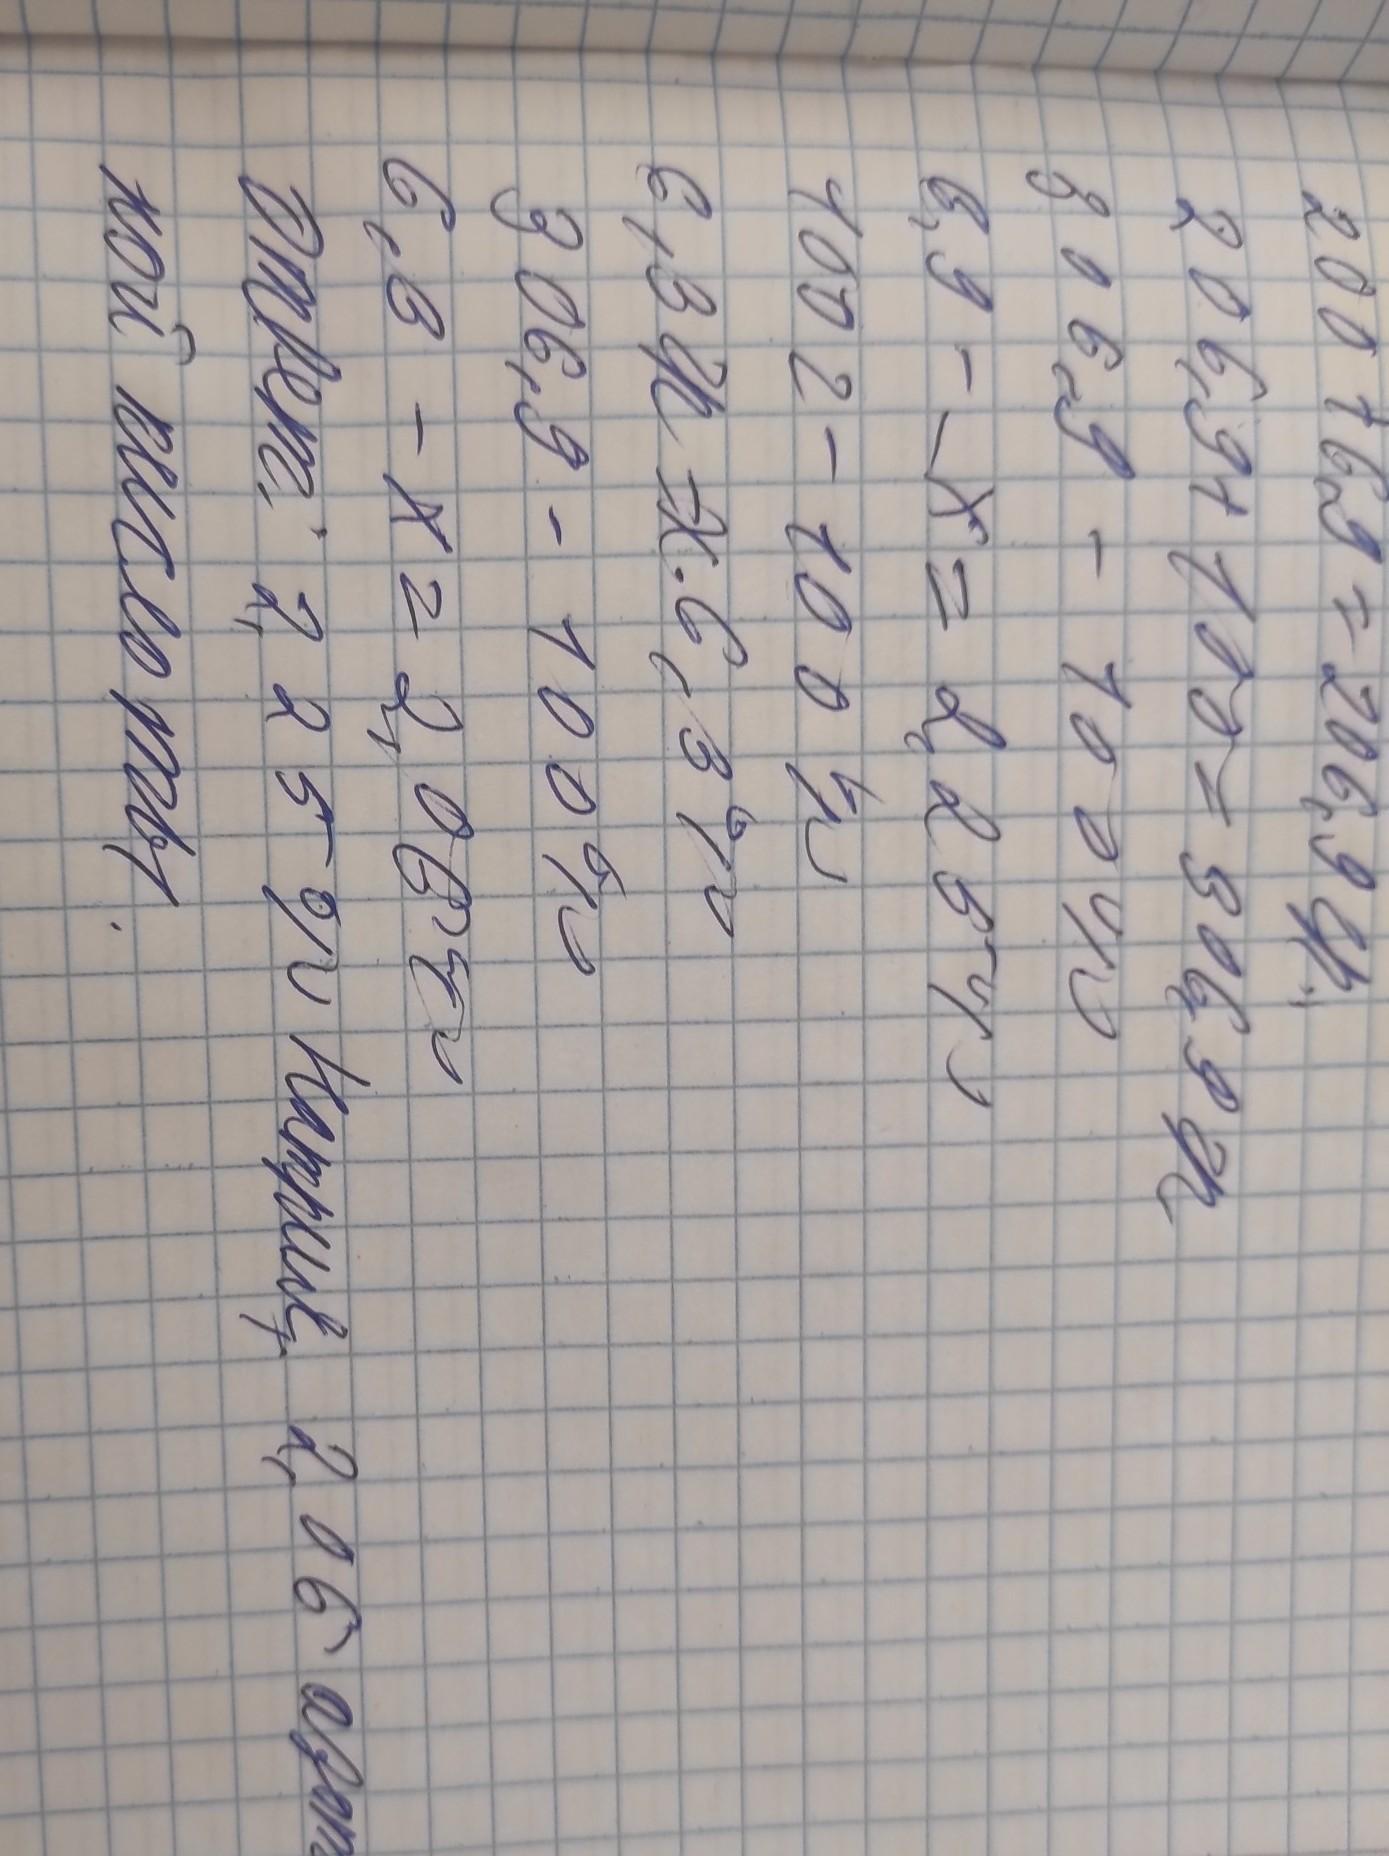 200+6,9=206,9 г.
206,9+100=306,9 г
306,9 - 100%
6,9 - х = 2,25%
100г - 100%
6,3г - х. 6,3%
306,9 - 100%
6,3 - х = 2,06%
Ответ: 2,25% натрий, 2,06 азот
ной кислоты.